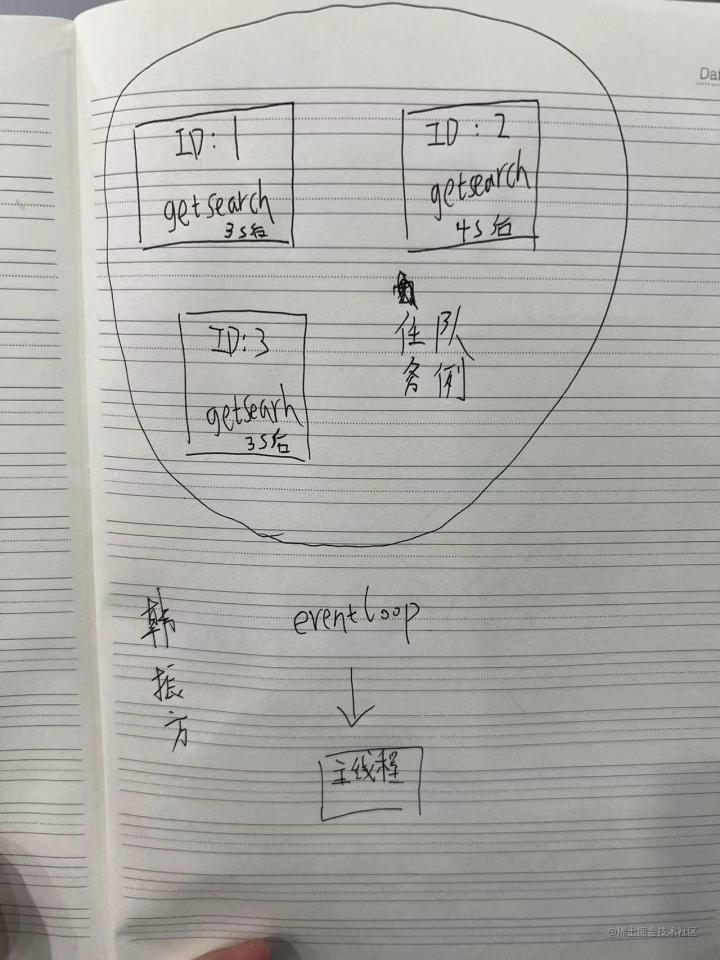 Dat
ID: 1
getsearch
3S后
ID: 2
getsearch
4S后
ID:3
getsearh
3S后
任队
务例
韩
振
方
eventloop
主线程
@稀土掘金技术社区